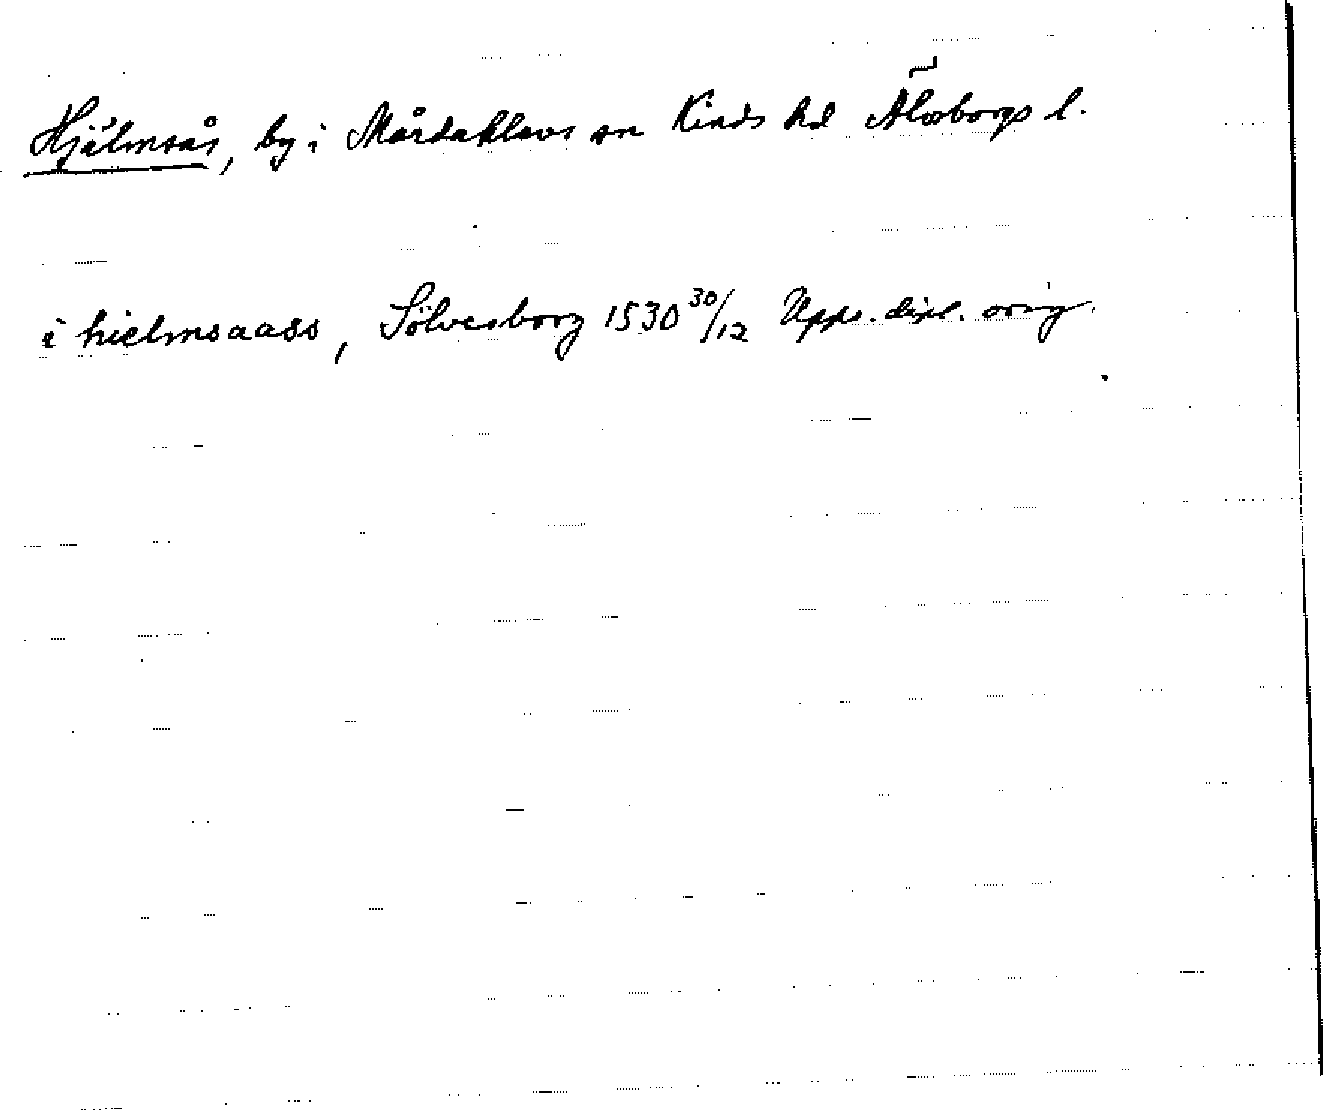 Hjälmsås, by i Mårdaklevs sn Kinds hd Älvsborgs l.
i hielmsaass, Sölvesborg 1530 30/12 Upps. dipl. orig.